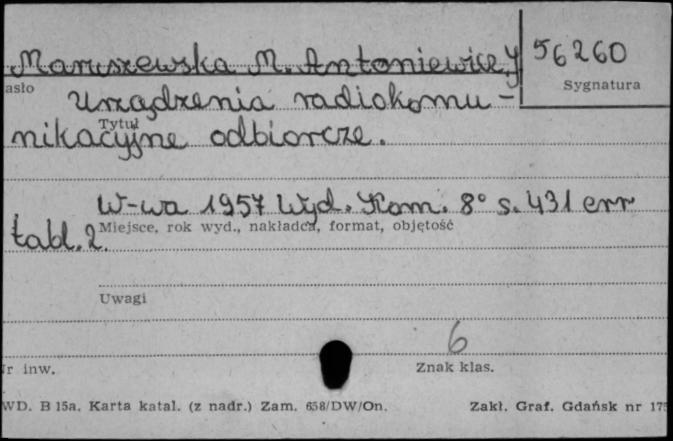 Maruszewska M. Antoniewicz J
56260
asło
Sygnatura
Urządzenia radiokomu-
Tytuł
nikacyjne odbiorcze.
W-wa 1957 Wyd. Kom. 8° s. 431 err
tabl. 2
Miejsce, rok wyd., nakładca, format, objętość
Uwagi
6
r inw.
Znak klas.
WD. B 15a. Karta katal. (z nadr.) Zam. 658/DW/On.
Zakł. Graf. Gdańsk nr 175